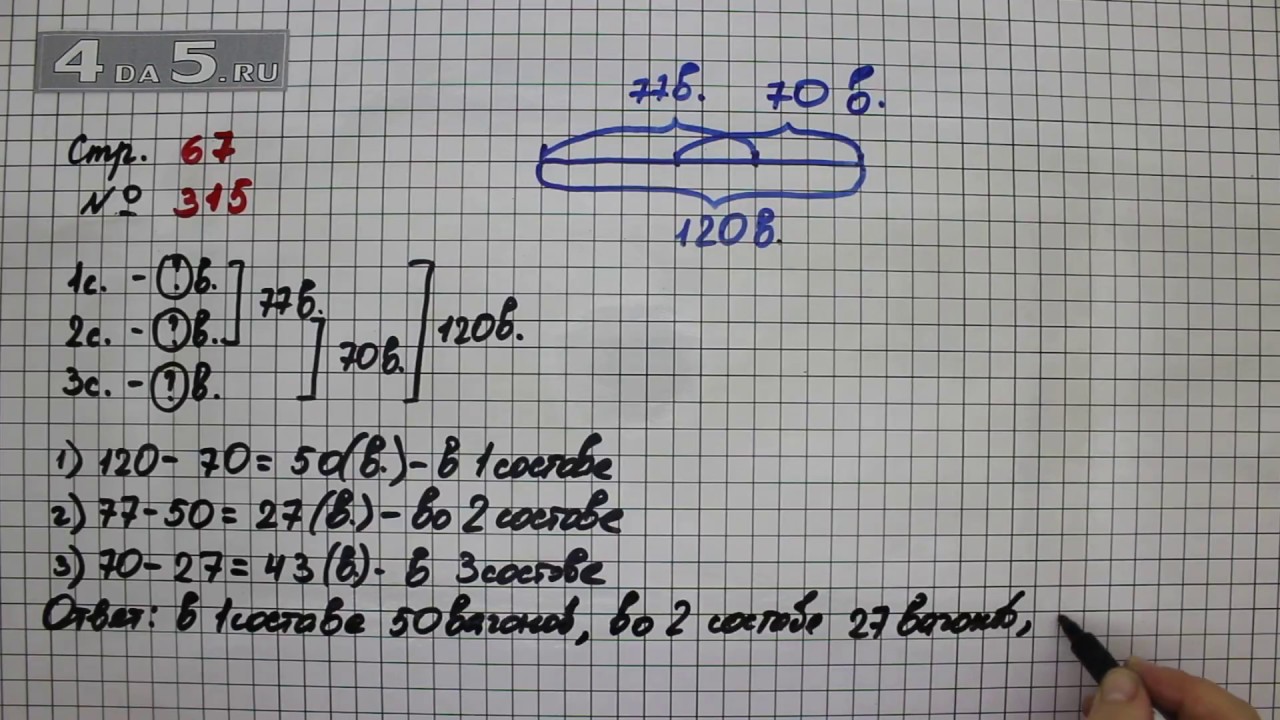 4 DA 5.RU
77в. 70 в.
120в.
Стр. 67
№ 315
1с. - ?в.
2с. - ?в.
3с. - ?в.
77в.
70в.
120в.
1) 120 - 70 = 50(в.) - в 1 составе
2) 77 - 50 = 27(в.) - во 2 составе
3) 70 - 27 = 43(в.) - в 3 составе
Ответ: в 1 составе 50 вагонов, во 2 составе 27 вагонов,